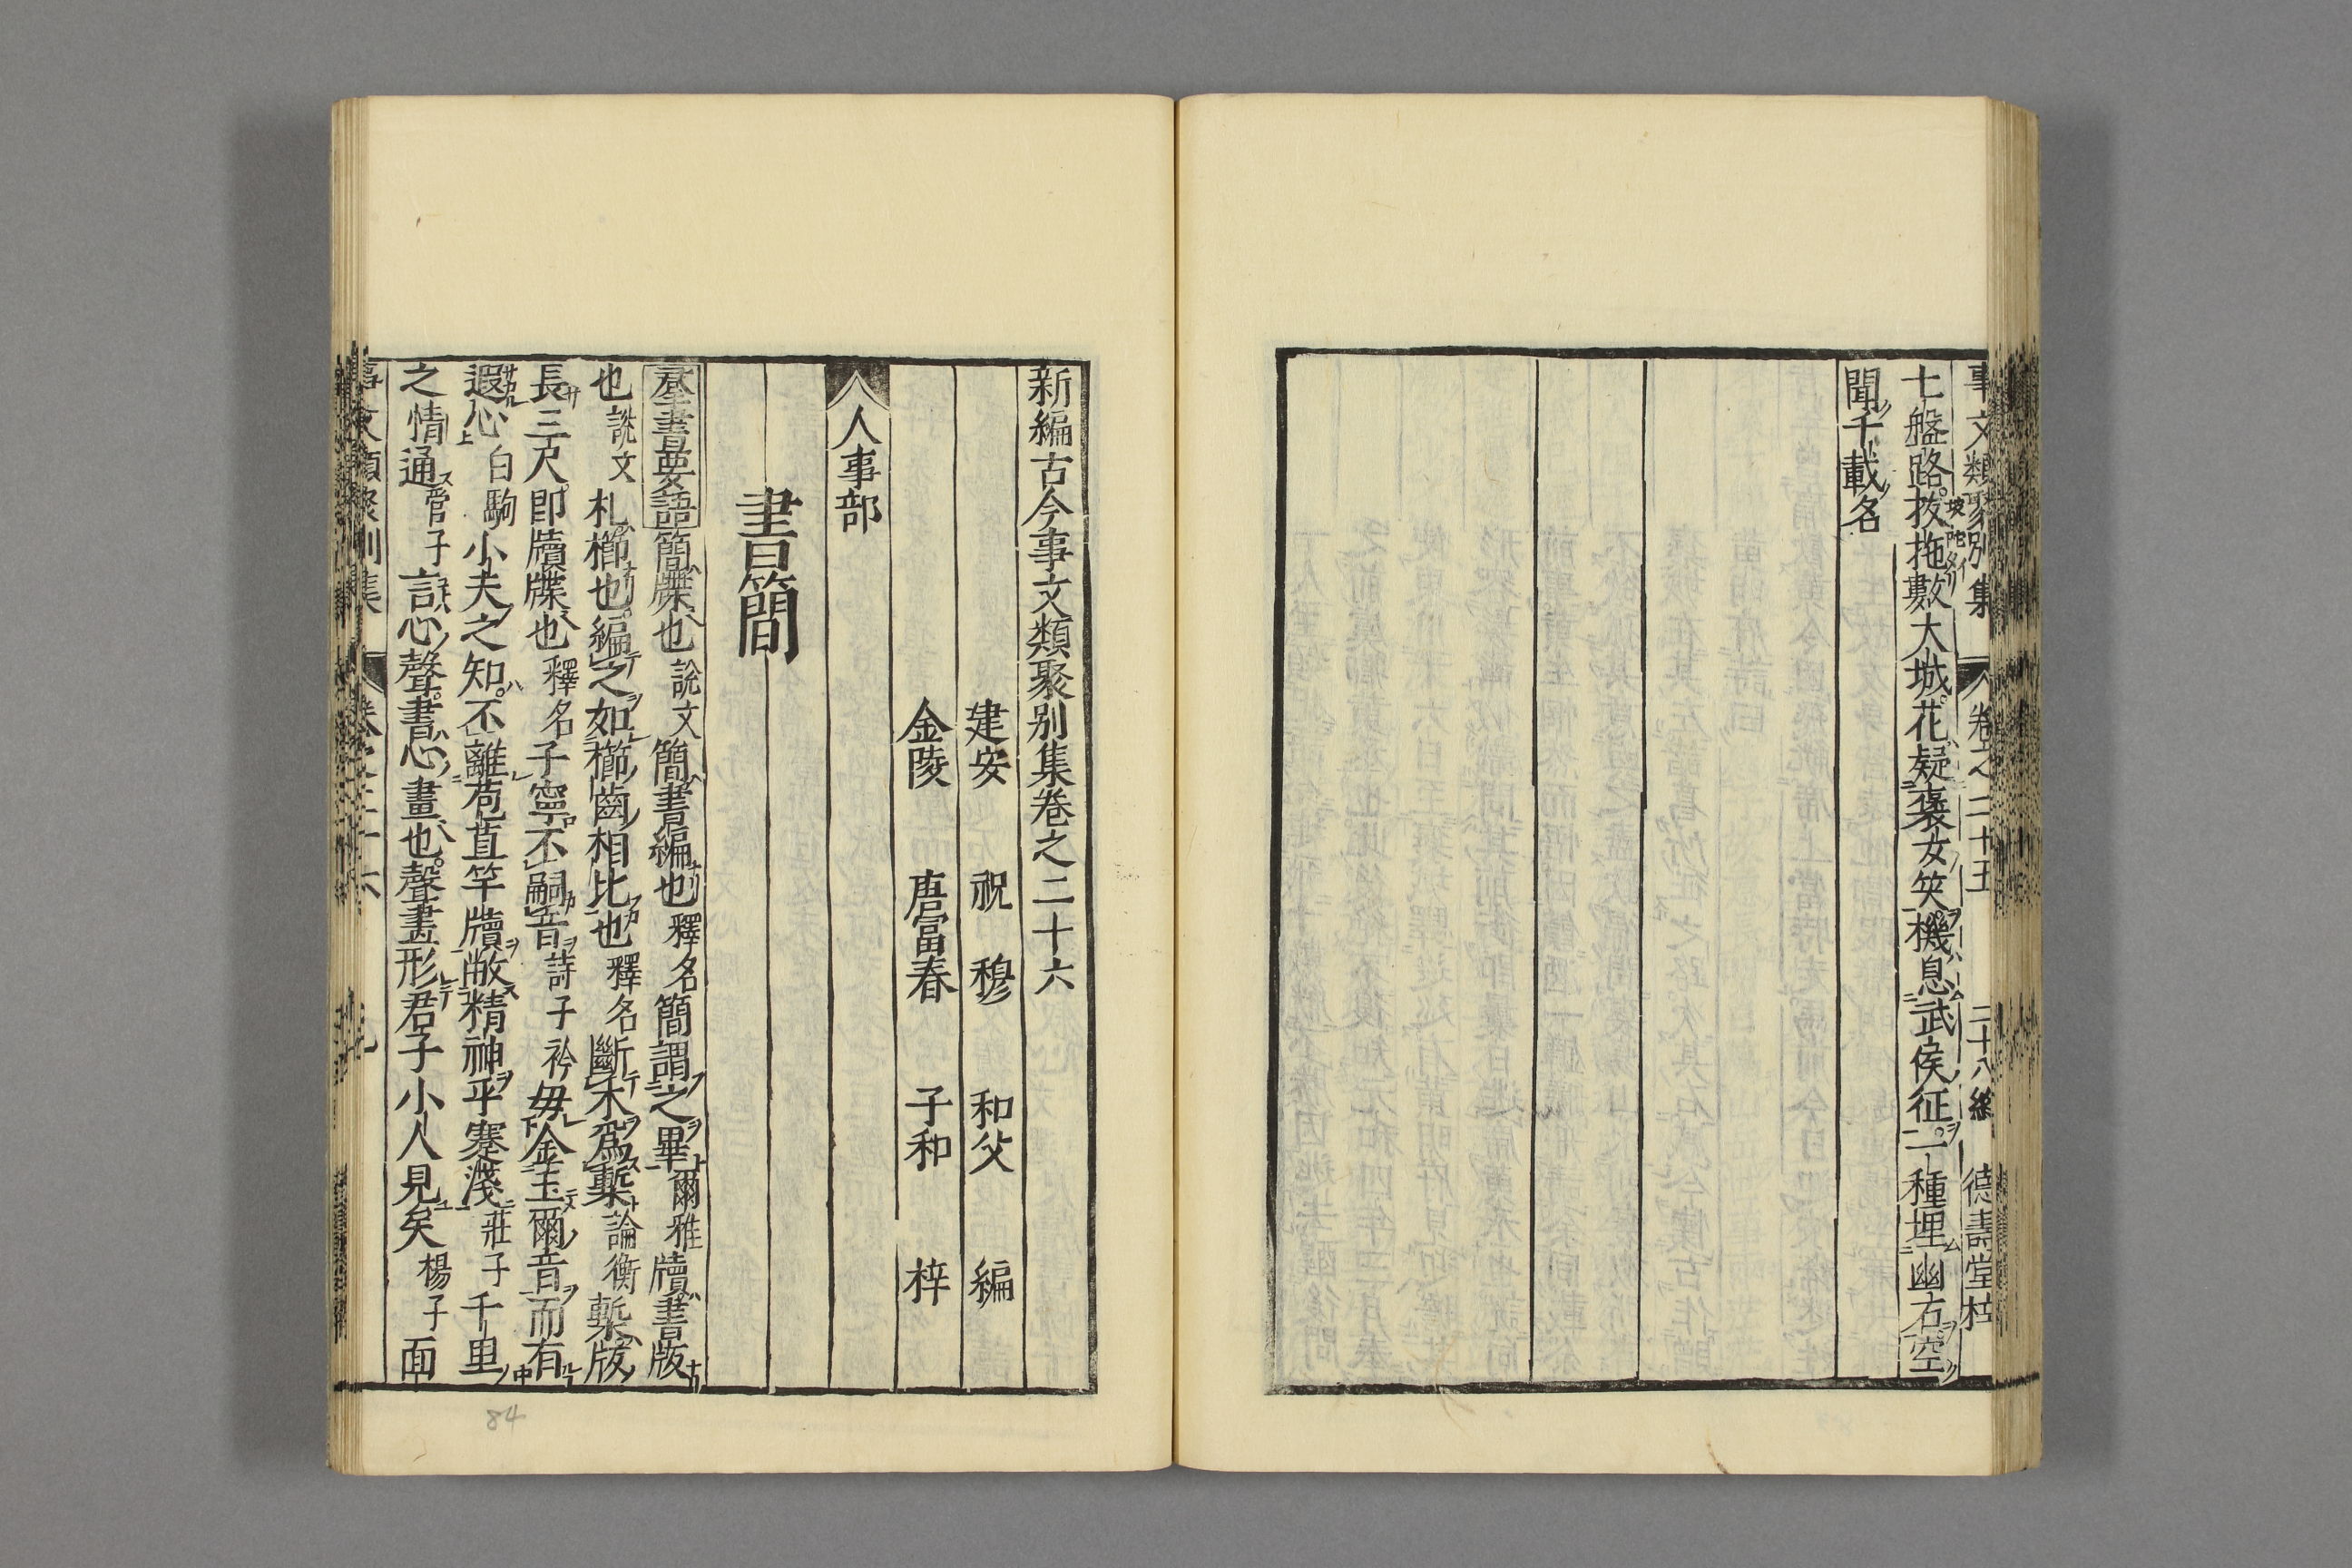 事文類聚別集 卷之二十五 三十八終 德壽堂梓
七盤路抜拖數大城花疑褒女笑機息武侯征一種埋幽右空
聞千載名
新編古今事文類聚别集卷之二十六
建安 祝 穆 和父 編
金陵 唐富春 子和 梓
人事部
書簡
羣書要語簡牒也説文簡書編也釋名簡謂之畢爾雅牘書版
也説文札櫛也編之如櫛齒相比也釋名斷木爲槧論衡槧版
長三尺即牘牒也釋名子寧不嗣音詩子衿毋金玉爾音而有
遐心白駒小夫之知不離苞苴竿牘敝精神乎蹇淺莊子千里
之情通管子言心聲書心畫也聲畫形君子小人見矣楊子面
84